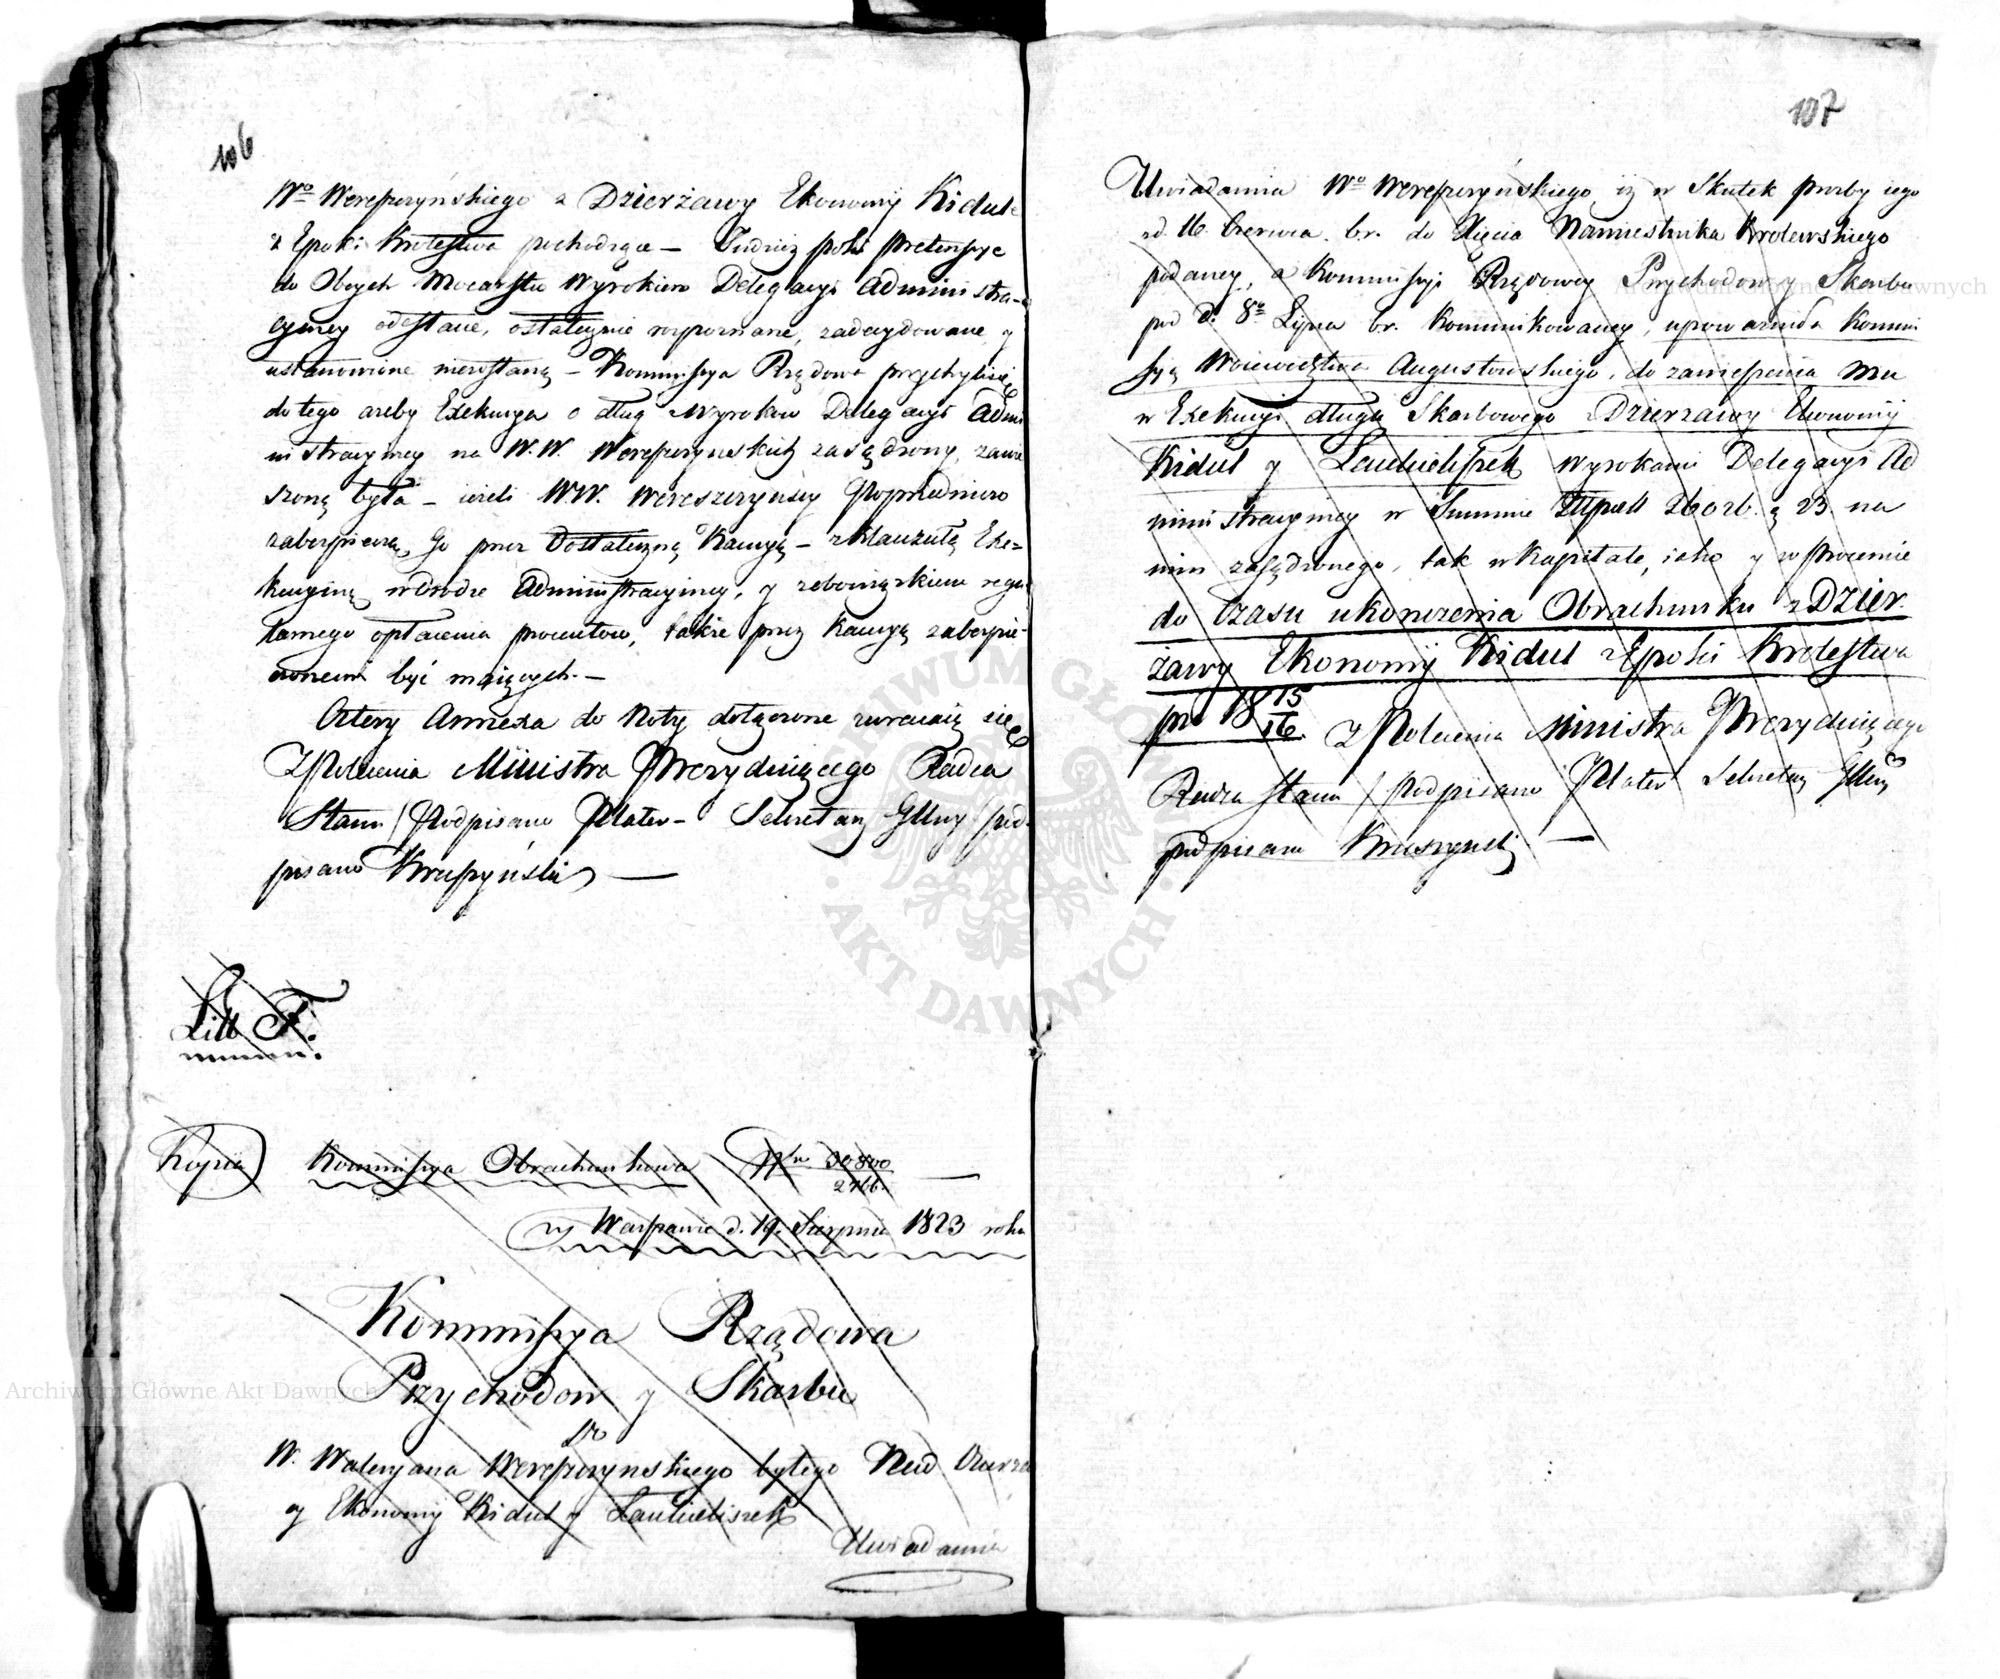 106
Wo Wereszczyńskiego z Dzierżawy Ekonomij Kidule
z Epoki Krolestwa pochodzące — Tudzież poki pretensye
do Obcych Mocarstw Wyrokiem Delegacyi Administra-
cyiney odesłane, ostatecznie rozpoznane, zadecydowane, y
ustanowione niezostaną — Kommissya Rządowa przychyliła się
do tego azeby Exekucya o dług Wyrokow Delegacyi Admi
nistracyiney na W.W. Wereszczynskich zasądzony, zawie
szoną była — ieżeli W.W. Wereszczynscy Poprzedniczo
zabezpieczą, Go przez Dostateczną Kaucyą — z Klauzulą Exe=
kucyiną w Drodze Administracyiney, y zobowiązkiem regu
larnego opłacenia procentow, także przez Kaucyą zabezpie-
czonemi być maiących. —
Cztery Annexa do Noty dołączone zwracaią się
Z Polecenia Ministra Prezyduiącego Radca
Stanu / Podpisano Plater — Sekretarz Gllny / pod-
pisano Kruszyński —
Litt F.
Kopia Kommissya Obrachunkowa Nro 30800 —
2766.
w Warszawie d. 19. Sierpnia 1823 roku
Kommissya Rządowa
Przychodow y Skarbu
Do
W. Waleryana Wereszczynskiego byłego Nad Dzierża
cy Ekonomij Kidul y Laukieliszek
Uwiadamia
107
Uwiadamia Wo Wereszczyńskiego, iż w Skutek proźby iego
od 16. Czerwca. b.r. do Xięcia Namiestnika Krolewskiego
podaney, a Kommissyi Rządowey Przychodow y Skarbu
pod d. 8o Lipca br. Kommunikowaney, upoważnia Kommi
syą Woiewodztwa Augustowskiego, do zawieszenia Mu
w Exekucyi długu Skarbowego z Dzierzawy Ekonomij
Kidul y Laukieliszek Wyrokami Delegacyi Ad
ministracyiney w Summie Złłpols 2602. g 23. na
nim zasądzonego, tak w Kapitale, iako y w procencie
do Czasu ukonczenia Obrachunku z Dzier.
żawy Ekonomij Kidul z Epoki Krolestwa
pro 18 15/16. Z Polecenia Ministra Prezyduiącego
Radca Stanu / podpisano Plater Sekretarz Gllny
podpisano Kruszynski —
Archiwum Główne Akt Dawnych
Archiwum Główne Akt Dawnych
ARCHIWUM GŁÓWNE AKT DAWNYCH